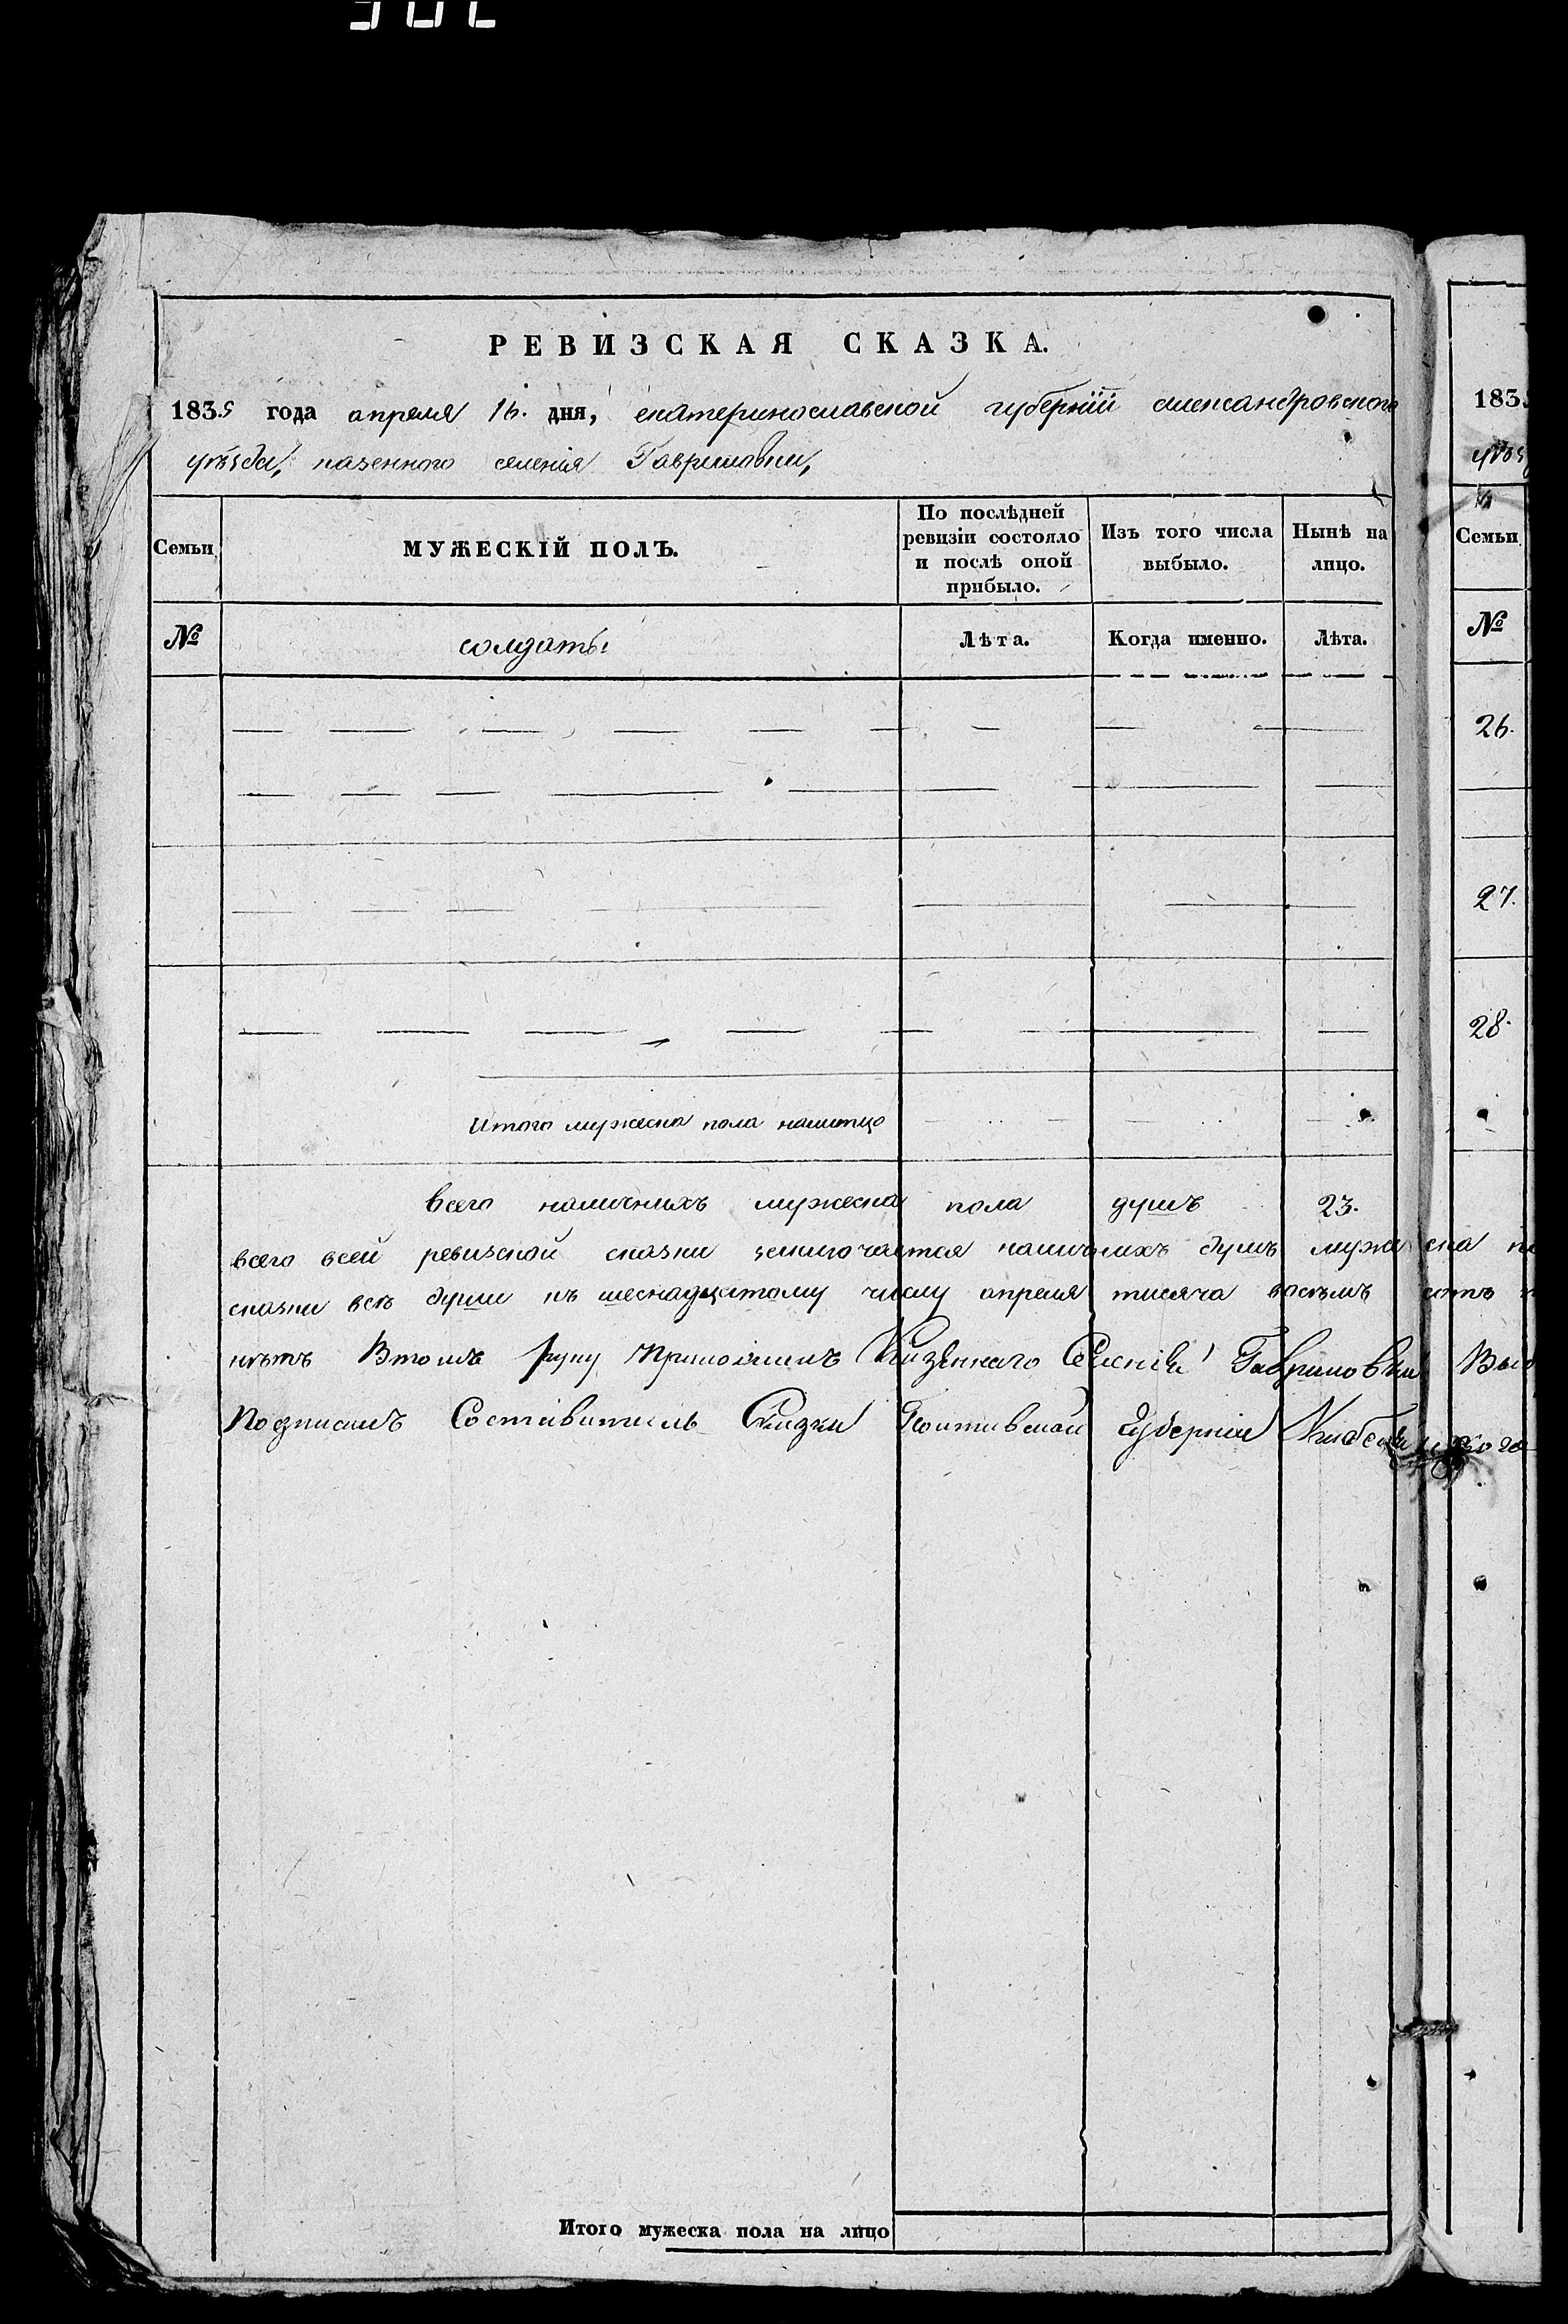 РЕВИЗСКАЯ СКАЗКА.
1835 года апреля 16. дня, екатеринославской губерніи александровского
уѣзда, казенного селенія Гавриловки,
Семьи
МУЖЕСКІЙ ПОЛЪ.
По послѣдней ревизіи состояло и послѣ оной прибыло.
Изъ того числа выбыло.
Нынѣ на лицо.
№
солдаты
Лѣта.
Когда именно.
Лѣта.
Итого мужеска пола налитцо
всего наличнихъ мужеска пола душъ 23.
всего всей ревизской сказки заключается наличнихъ душъ мужеска
сказки всѣ души къ шеснадцатому числу апреля тисяча восѣмъ сотъ
нѣтъ Втомъ руку Приложилъ Казеннаго Селенія Гавриловки
Подписалъ Составитель Сказки Полтавской Губерніи
Итого мужеска пола на лицо
183
Семьи
№
26.
27.
28.